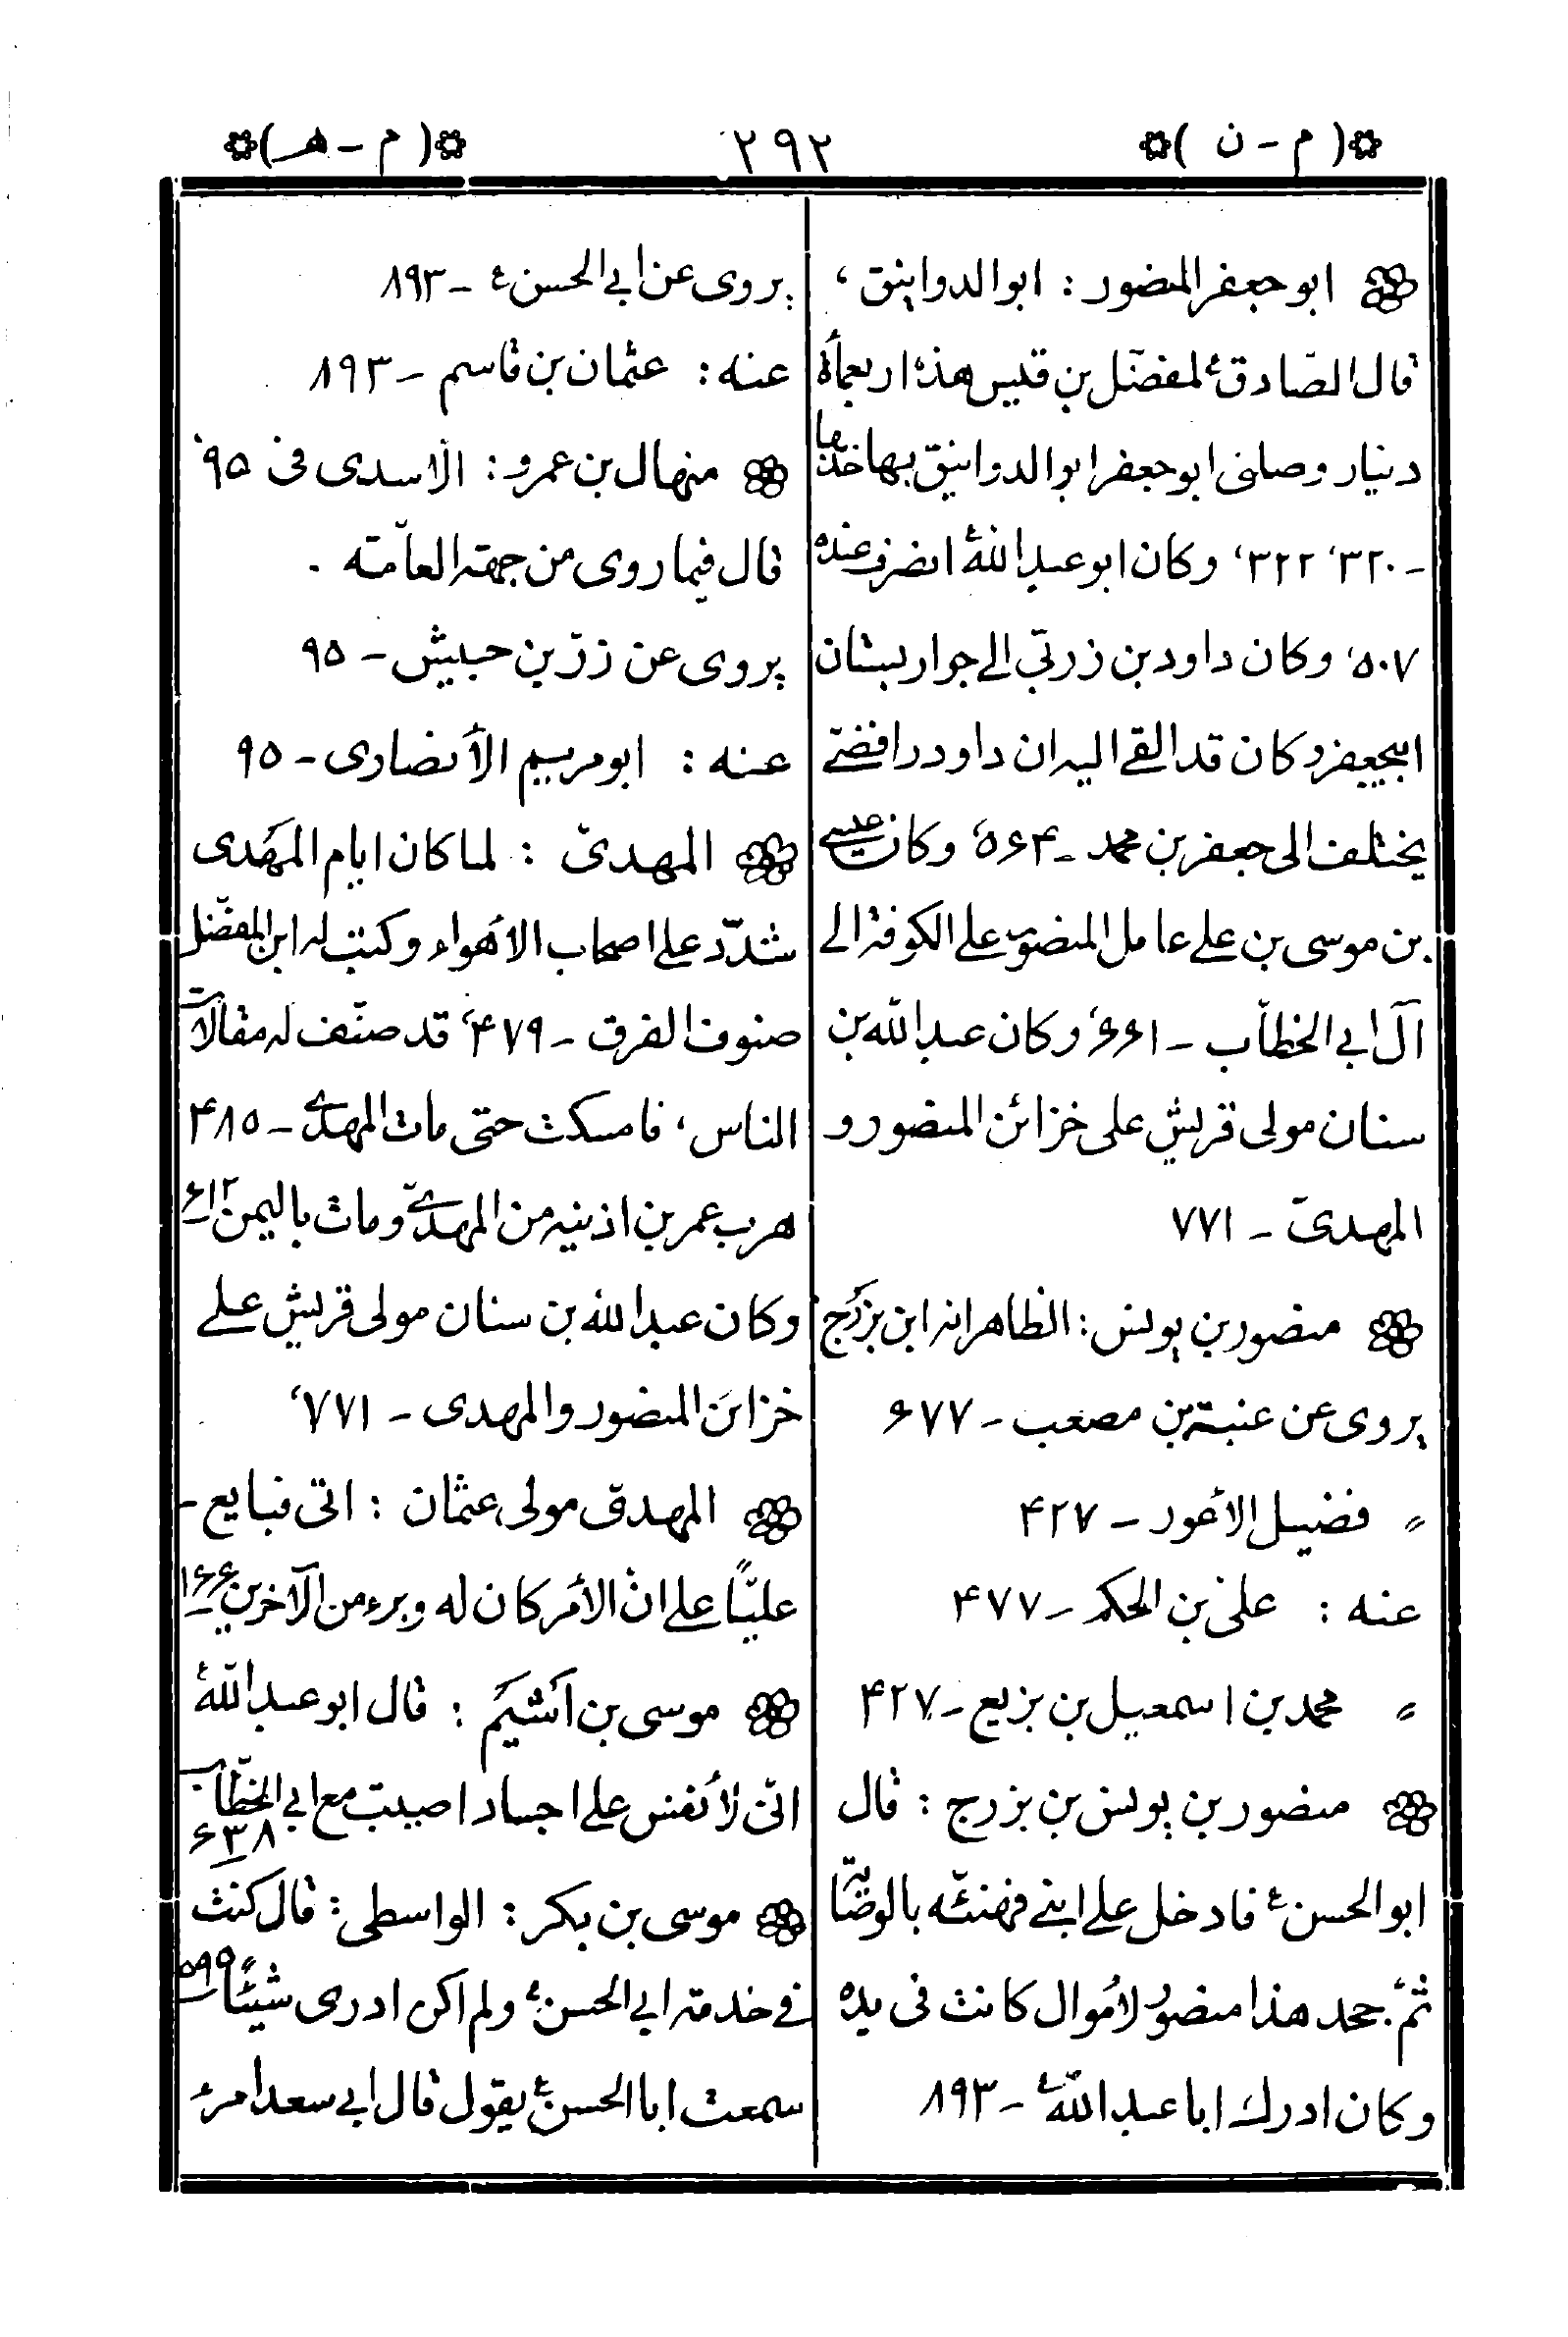 (م - ن)
٢٩٢
(م - هـ)
ابو جعفر المنصور : ابو الدوانيق ،
قال الصّادق ع لمفضّل بن قيس هذه اربعمأة
دينار وصلنى ابو جعفر ابو الدوانيق بها خذها
- ٣٢٠، ٣٢٢، وكان ابو عبد الله ع انصرف عنده
٥٠٧، وكان داود بن زربّى الى جوار بستان
ابيجعفر وكان قد القى اليه ان داود رافضىّ
يختلف الى جعفر بن محمد - ٥۶۴، وكان عيسى
بن موسى بن على عامل المنصور على الكوفة الى
آل ابى الخطّاب - ۶۶١، وكان عبد الله بن
سنان مولى قريش على خزائن المنصور و
المهدىّ - ٧٧١
منصور بن يونس : الظاهر انه ابن بزرج
يروى عن عنبة بن مصعب - ۶٧٧
〃 فضيل الأعور - ۴٢٧
عنه : علىّ بن الحكم - ۴٧٧
〃 محمد بن اسمعيل بن بزيع - ۴٢٧
منصور بن يونس بن بزرج : قال
ابو الحسن ع فادخل على ابنى فهنئه بالوصيّة
ثمّ جحد هذا منصور لأموال كانت فى يده
وكان ادرك ابا عبد الله ع - ٨٩٣
يروى عن ابى الحسن ع - ٨٩٣
عنه : عثمان بن قاسم - ٨٩٣
منهال بن عمرو : الأسدى فى ٩٥،
قال فيما روى من جهة العامّة .
يروى عن زرّ بن حبيش - ٩٥
عنه : ابو مريم الأنصارى - ٩٥
المهدىّ : لما كان ايام المهدى
شدّد على اصحاب الأهواء وكتب له ابن المفضّل
صنوف الفرق - ۴٧٩، قد صنّف له مقالات
الناس ، فامسكت حتى مات المهدى - ۴٨٥
هرب عمر بن اذينه من المهدىّ ومات باليمن - ۶١٢
وكان عبد الله بن سنان مولى قريش على
خزائن المنصور والمهدى - ٧٧١،
المهدىّ مولى عثمان : اتى فبايع -
عليّاً على انّ الأمر كان له وبرء من الآخرين - ١۶۶
موسى بن أشيَم : قال ابو عبد الله ع
انّى لأنفس على اجساد اصيبت مع ابى الخطّاب - ۶٣٨
موسى بن بكر : الواسطى : قال كنت
فى خدمة ابى الحسن ع ولم اكن ادرى شيئاً - ٥٩٩
سمعت ابا الحسن ع يقول قال ابى سعد امرء